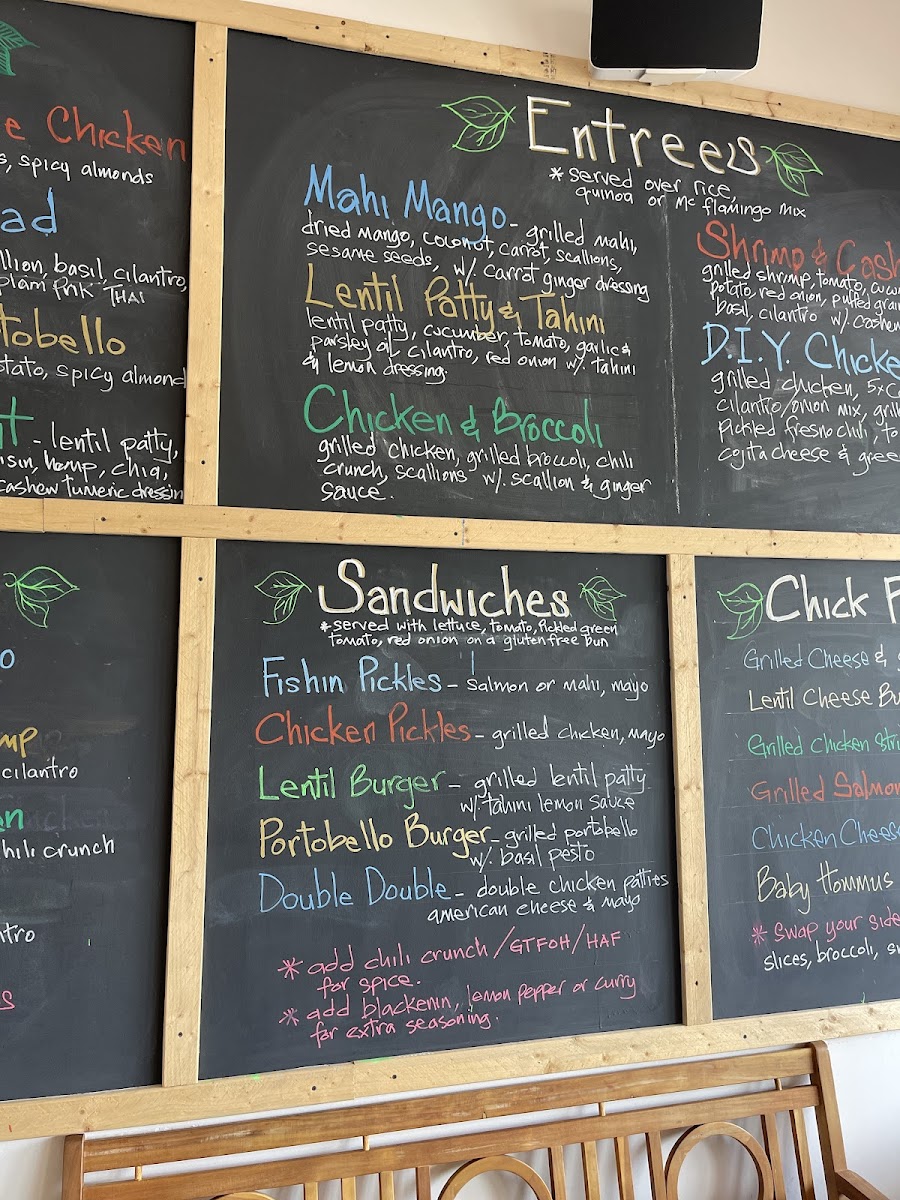 e Chicken
s, spicy almonds
ad
llion, basil, cilantro,
plam Pnk THAI
tobello
otato, spicy almond
t - lentil patty,
isin, hemp, chia,
cashew tumeric dressin
Entrees
* served over rice,
quinoa or Mc flamingo mix
Mahi Mango - grilled mahi,
dried mango, coconut, carrot, scallions,
sesame seeds, w/. carrot ginger dressing
Lentil Patty & Tahini
lentil patty, cucumber, tomato, garlic &
parsley oil, cilantro, red onion w/. tahini
& lemon dressing.
Chicken & Broccoli
grilled chicken, grilled broccoli, chili
crunch, scallions w/. scallion & ginger
sauce.
Shrimp & Cash
grilled shrimp, tomato, cucu
potato, red onion, puffed grai
basil, cilantro w/. cashew
D.I.Y. Chicke
grilled chicken, 5xC
cilantro/onion mix, gril
Pickled fresno chili, to
cojita cheese & gree
o
mp
cilantro
en
hili crunch
ntro
s
Sandwiches
*served with lettuce, tomato, pickled green
tomato, red onion on a gluten free bun
Fishin Pickles - salmon or mahi, mayo
Chicken Pickles - grilled chicken, mayo
Lentil Burger - grilled lentil patty
w/. tahini lemon sauce
Portobello Burger - grilled portobello
w/. basil pesto
Double Double - double chicken patties
american cheese & mayo
* add chili crunch / GTFOH / HAF
for spice.
* add blackenin, lemon pepper or curry
for extra seasoning.
Chick F
Grilled Cheese &
Lentil Cheese Bu
Grilled Chicken Stri
Grilled Salmon
Chicken Cheese
Baby Hommus
* Swap your side
slices, broccoli, s